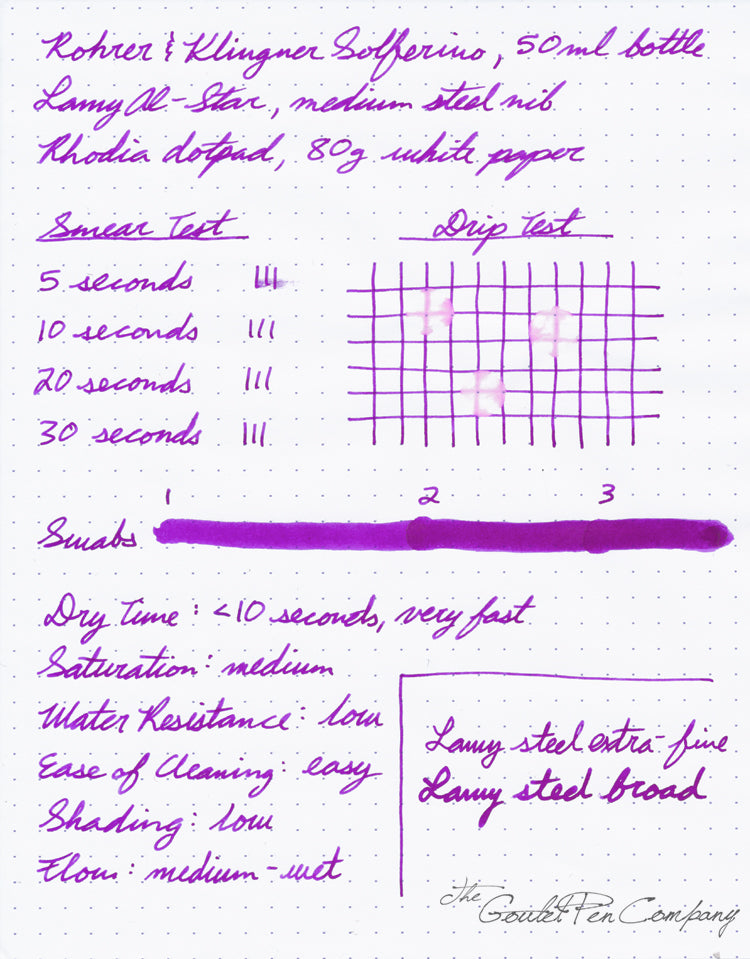 Rohrer & Klingner Solferino, 50ml bottle
Lamy Al-Star, medium steel nib
Rhodia dotpad, 80g white paper
Smear Test
Drip Test
5 seconds
10 seconds
20 seconds
30 seconds
1 2 3
Swabs
Dry Time: <10 seconds, very fast
Saturation: medium
Water Resistance: low
Ease of Cleaning: easy
Shading: low
Flow: medium-wet
Lamy steel extra-fine
Lamy steel broad
The Goulet Pen Company